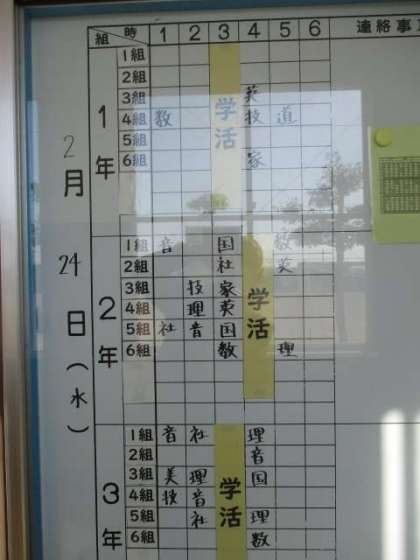 組 時 1 2 3 4 5 6 連絡事
2月24日(水)
1年
学活
1組
2組
3組 英
4組 数 技 道
5組
6組 家
2年
学活
1組 音 国 数
2組 社 英
3組 技 家
4組 理 英
5組 社 音 国
6組 数 理
3年
学活
1組 音 社 理
2組 音
3組 美 理 国
4組 技 音
5組 社 理
6組 数